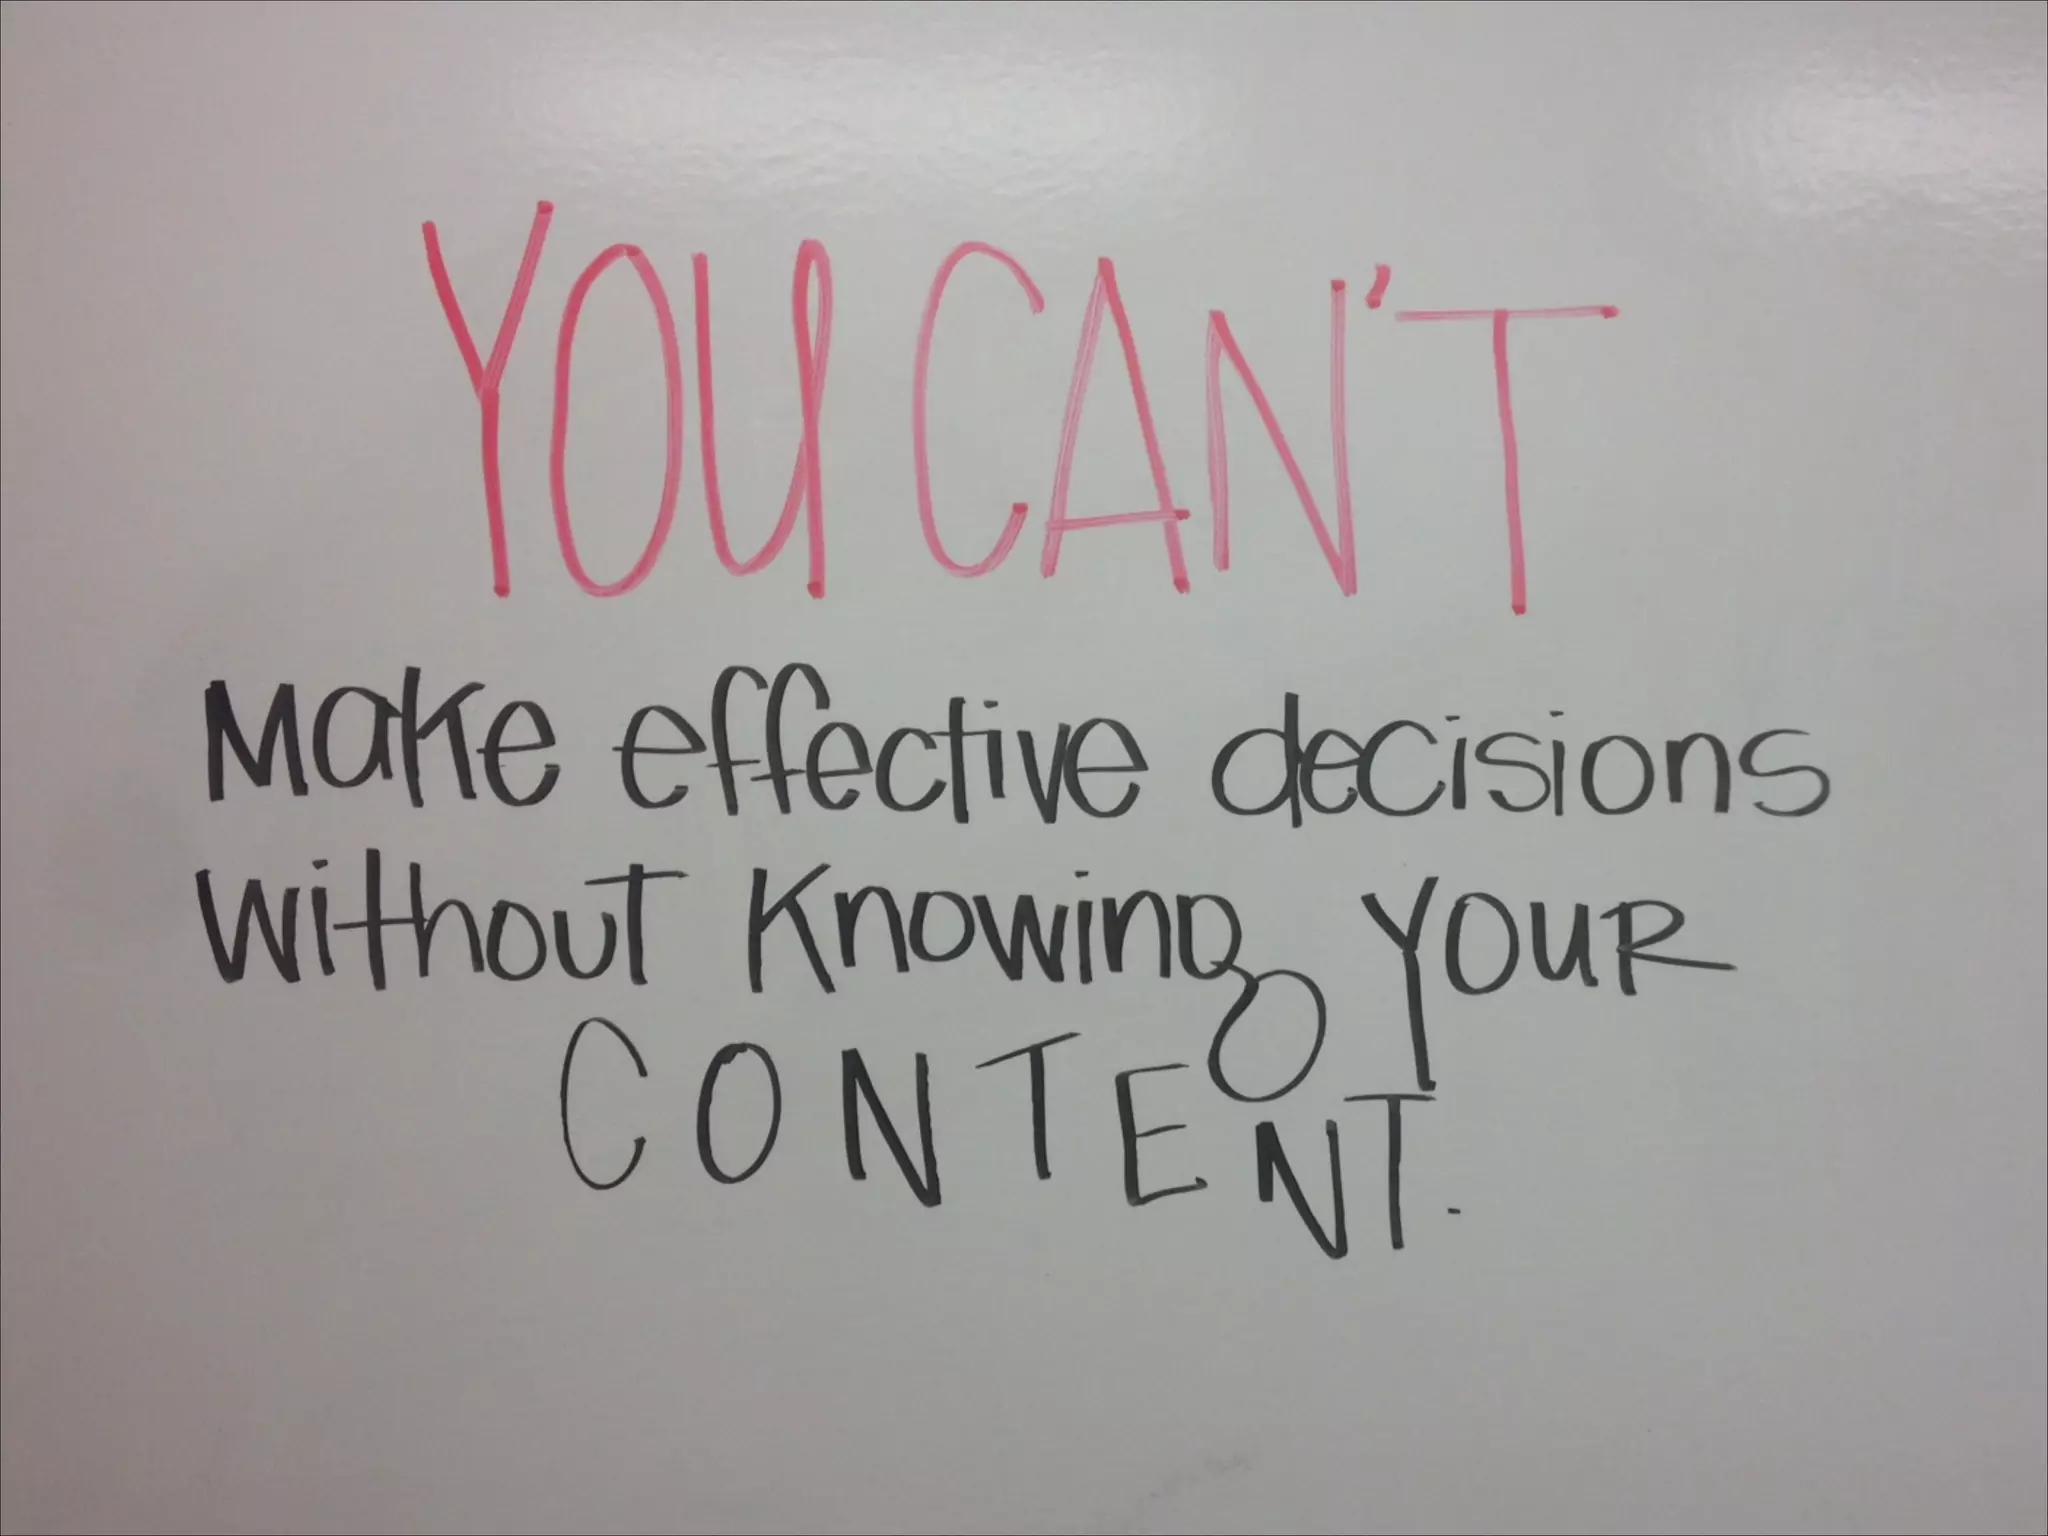 YOU CAN'T
Make effective decisions
without knowing YOUR
CONTENT.